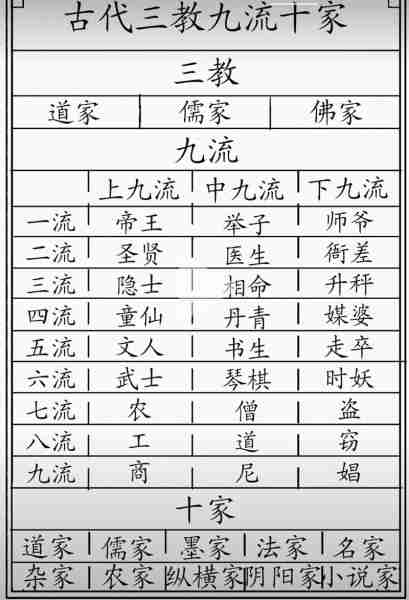 古代三教九流十家
三教
道家 儒家 佛家
九流
上九流 中九流 下九流
一流 帝王 举子 师爷
二流 圣贤 医生 衙差
三流 隐士 相命 升秤
四流 童仙 丹青 媒婆
五流 文人 书生 走卒
六流 武士 琴棋 时妖
七流 农 僧 盗
八流 工 道 窃
九流 商 尼 娼
十家
道家 儒家 墨家 法家 名家
杂家 农家 纵横家 阴阳家 小说家